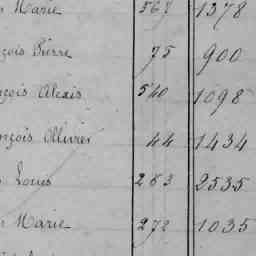 Marie 567 1378
çois Pierre 75 900
çois Alexis 540 1098
nçois Ollivier 44 1434
Louis 283 2535
Marie 272 1035